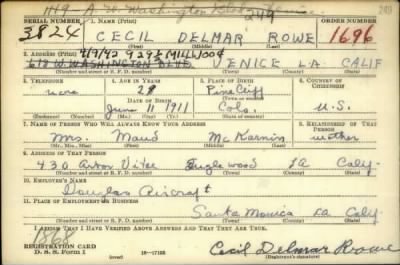 249
SERIAL NUMBER 1. NAME (Print) ORDER NUMBER
3824 CECIL DELMAR ROWE 1696
(First) (Middle) (Last)
2. ADDRESS (Print)
618 W. WASHINGTON BLVD. VENICE L.A. CALIF
(Number and street or R. F. D. number) (Town) (County) (State)
3. TELEPHONE 4. AGE IN YEARS 5. PLACE OF BIRTH 6. COUNTRY OF CITIZENSHIP
none 28 Pine Cliff
DATE OF BIRTH (Town or county)
June 11 1911 Colo. U.S.
(Mo.) (Day) (Yr.) (State or country)
7. NAME OF PERSON WHO WILL ALWAYS KNOW YOUR ADDRESS 8. RELATIONSHIP OF THAT PERSON
Mrs. Maud
(Mr., Mrs., Miss) (First) (Middle) (Last)
9. ADDRESS OF THAT PERSON
430 Inglewood LA
(Number and street or R. F. D. number) (Town) (County) (State)
10. EMPLOYER'S NAME
Douglas Aircraft
11. PLACE OF EMPLOYMENT OR BUSINESS
Santa Monica La
(Number and street or R. F. D. number) (Town) (County) (State)
I AFFIRM THAT I HAVE VERIFIED ABOVE ANSWERS AND THAT THEY ARE TRUE.
1868
REGISTRATION CARD
D. S. S. Form 1 (over) Cecil Delmar Rowe
(Registrant's signature)